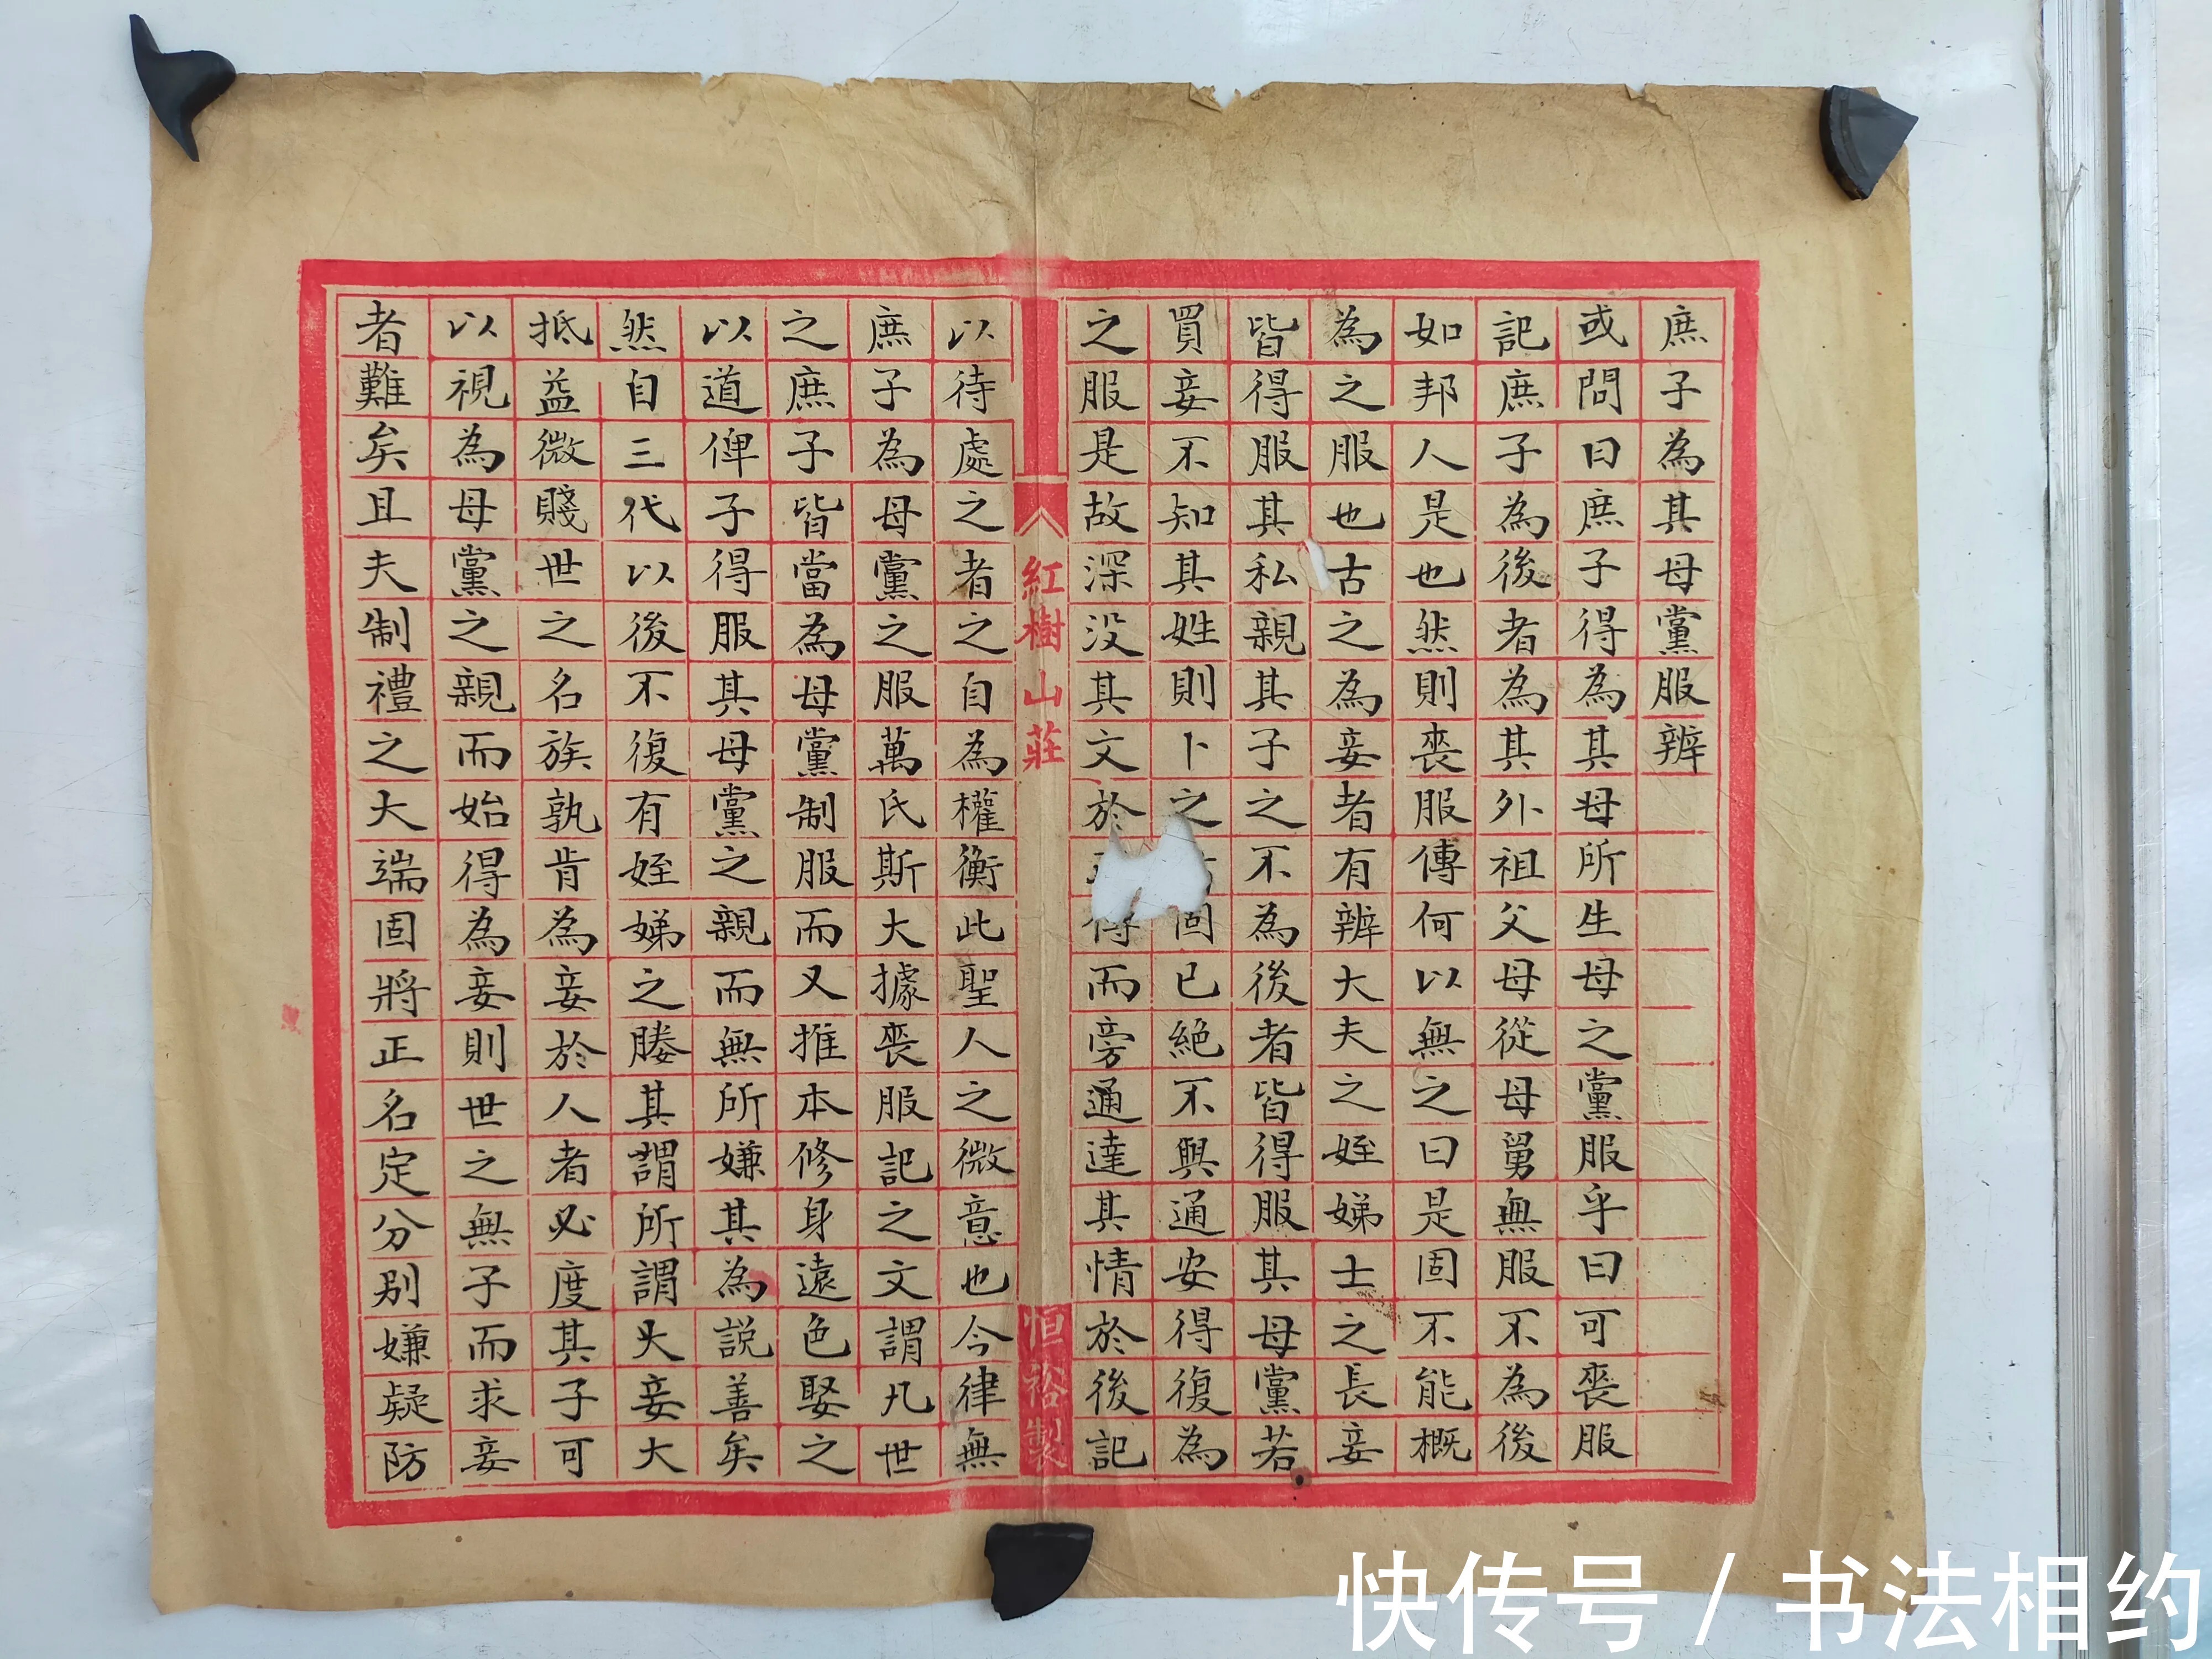 庶子為其母黨服辨
或問曰庶子得為其母所生母之黨服乎曰可喪服
記庶子為後者為其外祖父母從母舅無服不為後
如邦人是也然則喪服傳何以無之曰是固不能概
為之服也古之為妾者有辨大夫之姪娣士之長妾
皆得服其私親其子之不為後者皆得服其母黨若
買妾不知其姓則卜之固已絕不與通安得復為
之服是故深沒其文於傳而旁通達其情於後記
紅樹山莊
恒裕製
以待處之者之自為權衡此聖人之微意也今律無
庶子為母黨之服萬氏斯大據喪服記之文謂凡世
之庶子皆當為母黨制服而又推本修身遠色娶之
以道俾子得服其母黨之親而無所嫌其為説善矣
然自三代以後不復有姪娣之媵其謂所謂大妾大
抵益微賤世之名族孰肯為妾於人者必度其子可
以視為母黨之親而始得為妾則世之無子而求妾
者難矣且夫制禮之大端固將正名定分别嫌疑防
快传号 / 书法相约